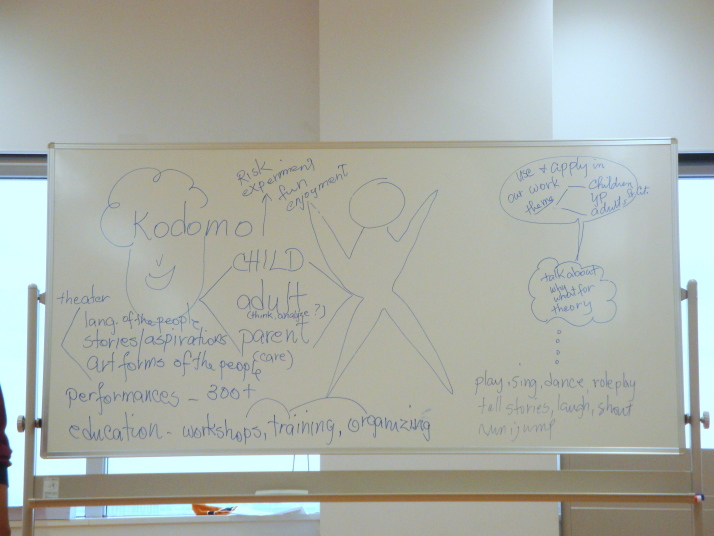 Risk
experiment
fun
enjoyment
Kodomo
CHILD
adult
(think, analyze?)
parent
(care)
theater
lang of the people
stories/aspirations
art forms of the people
performances - 300+
education - workshops, training, organizing
use & apply in
our work
theme
children
YP
adult,
talk about
why
what for
theory
play, sing, dance, roleplay
tell stories, laugh, shout
run, jump